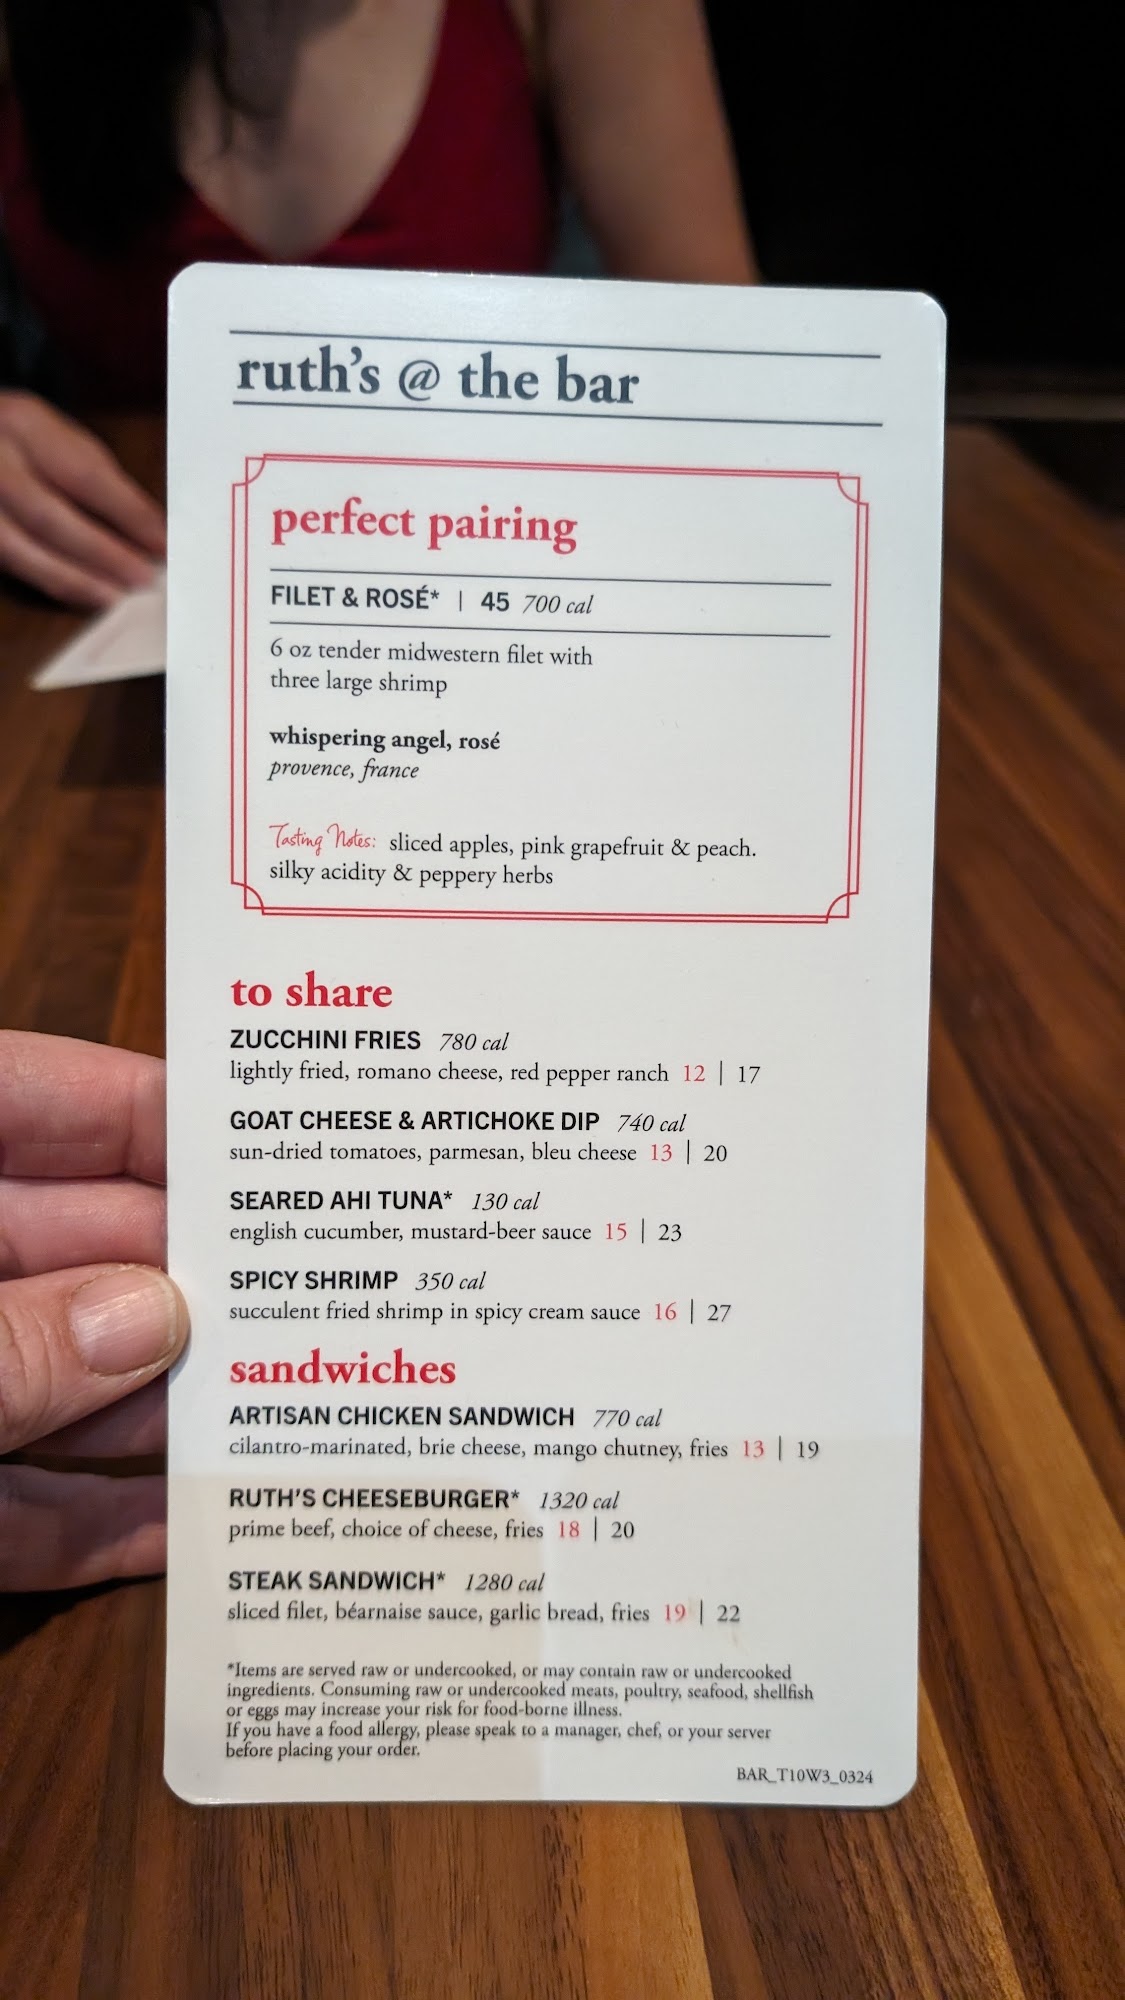 ruth's @ the bar
perfect pairing
FILET & ROSÉ* | 45 700 cal
6 oz tender midwestern filet with
three large shrimp
whispering angel, rosé
provence, france
Tasting Notes: sliced apples, pink grapefruit & peach.
silky acidity & peppery herbs
to share
ZUCCHINI FRIES 780 cal
lightly fried, romano cheese, red pepper ranch 12 | 17
GOAT CHEESE & ARTICHOKE DIP 740 cal
sun-dried tomatoes, parmesan, bleu cheese 13 | 20
SEARED AHI TUNA* 130 cal
english cucumber, mustard-beer sauce 15 | 23
SPICY SHRIMP 350 cal
succulent fried shrimp in spicy cream sauce 16 | 27
sandwiches
ARTISAN CHICKEN SANDWICH 770 cal
cilantro-marinated, brie cheese, mango chutney, fries 13 | 19
RUTH'S CHEESEBURGER* 1320 cal
prime beef, choice of cheese, fries 18 | 20
STEAK SANDWICH* 1280 cal
sliced filet, béarnaise sauce, garlic bread, fries 19 | 22
*Items are served raw or undercooked, or may contain raw or undercooked
ingredients. Consuming raw or undercooked meats, poultry, seafood, shellfish
or eggs may increase your risk for food-borne illness.
If you have a food allergy, please speak to a manager, chef, or your server
before placing your order.
BAR_T10W3_0324